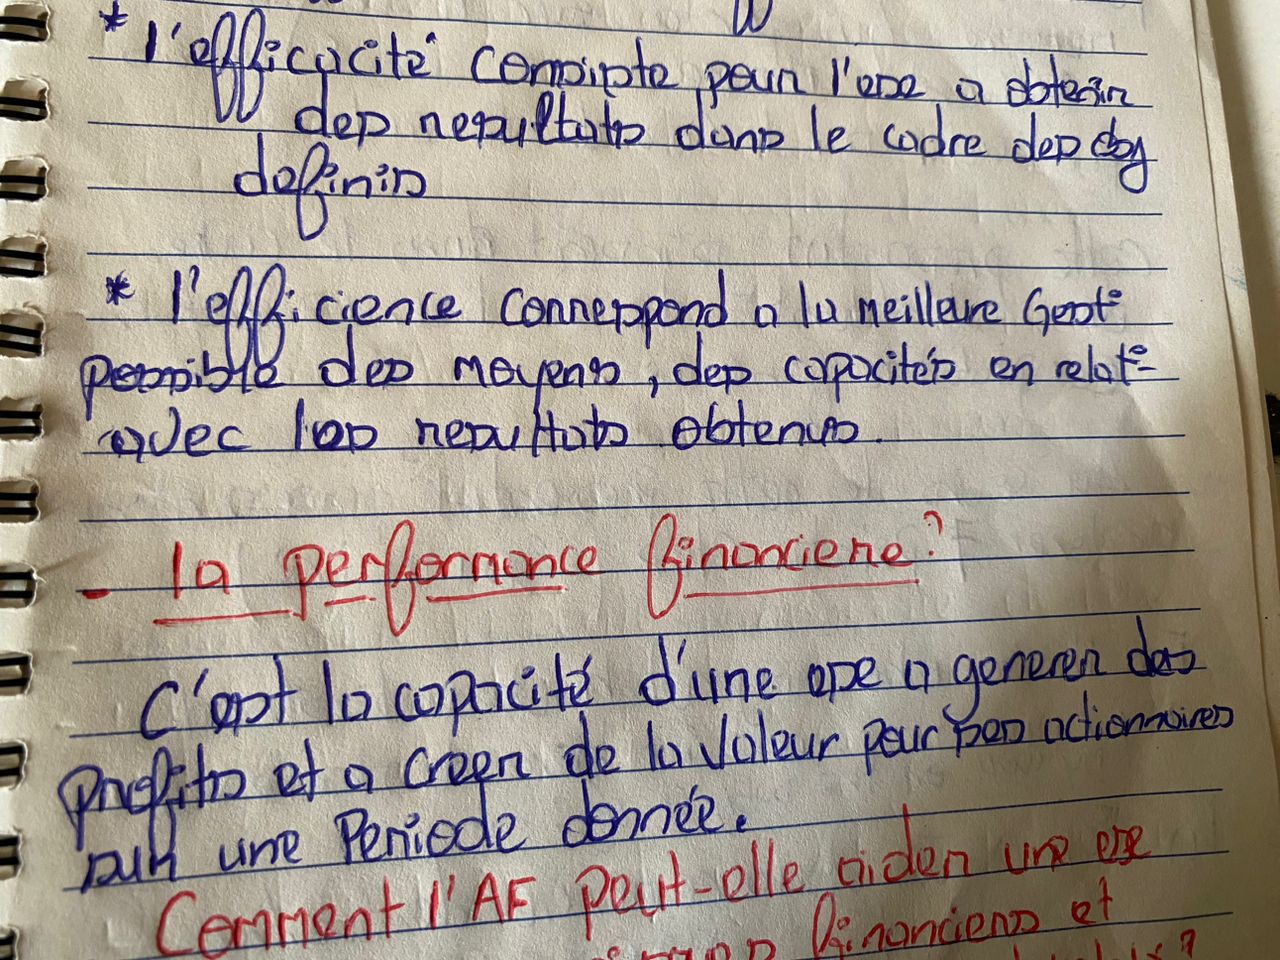 * l'efficacité consiste pour l'ese a obtenir
des resultats dans le cadre des obj
definis
* l'efficience correspond a la meilleure Gest°
possible des moyens, des capacités en relat°
avec les resultats obtenus.
- la performance financiere ?
C'est la capacité d'une ese a generer des
profits et a creer de la valeur pour ses actionnaires
sur une Periode donnée.
Comment l'AF peut-elle aider une ese
financiers et